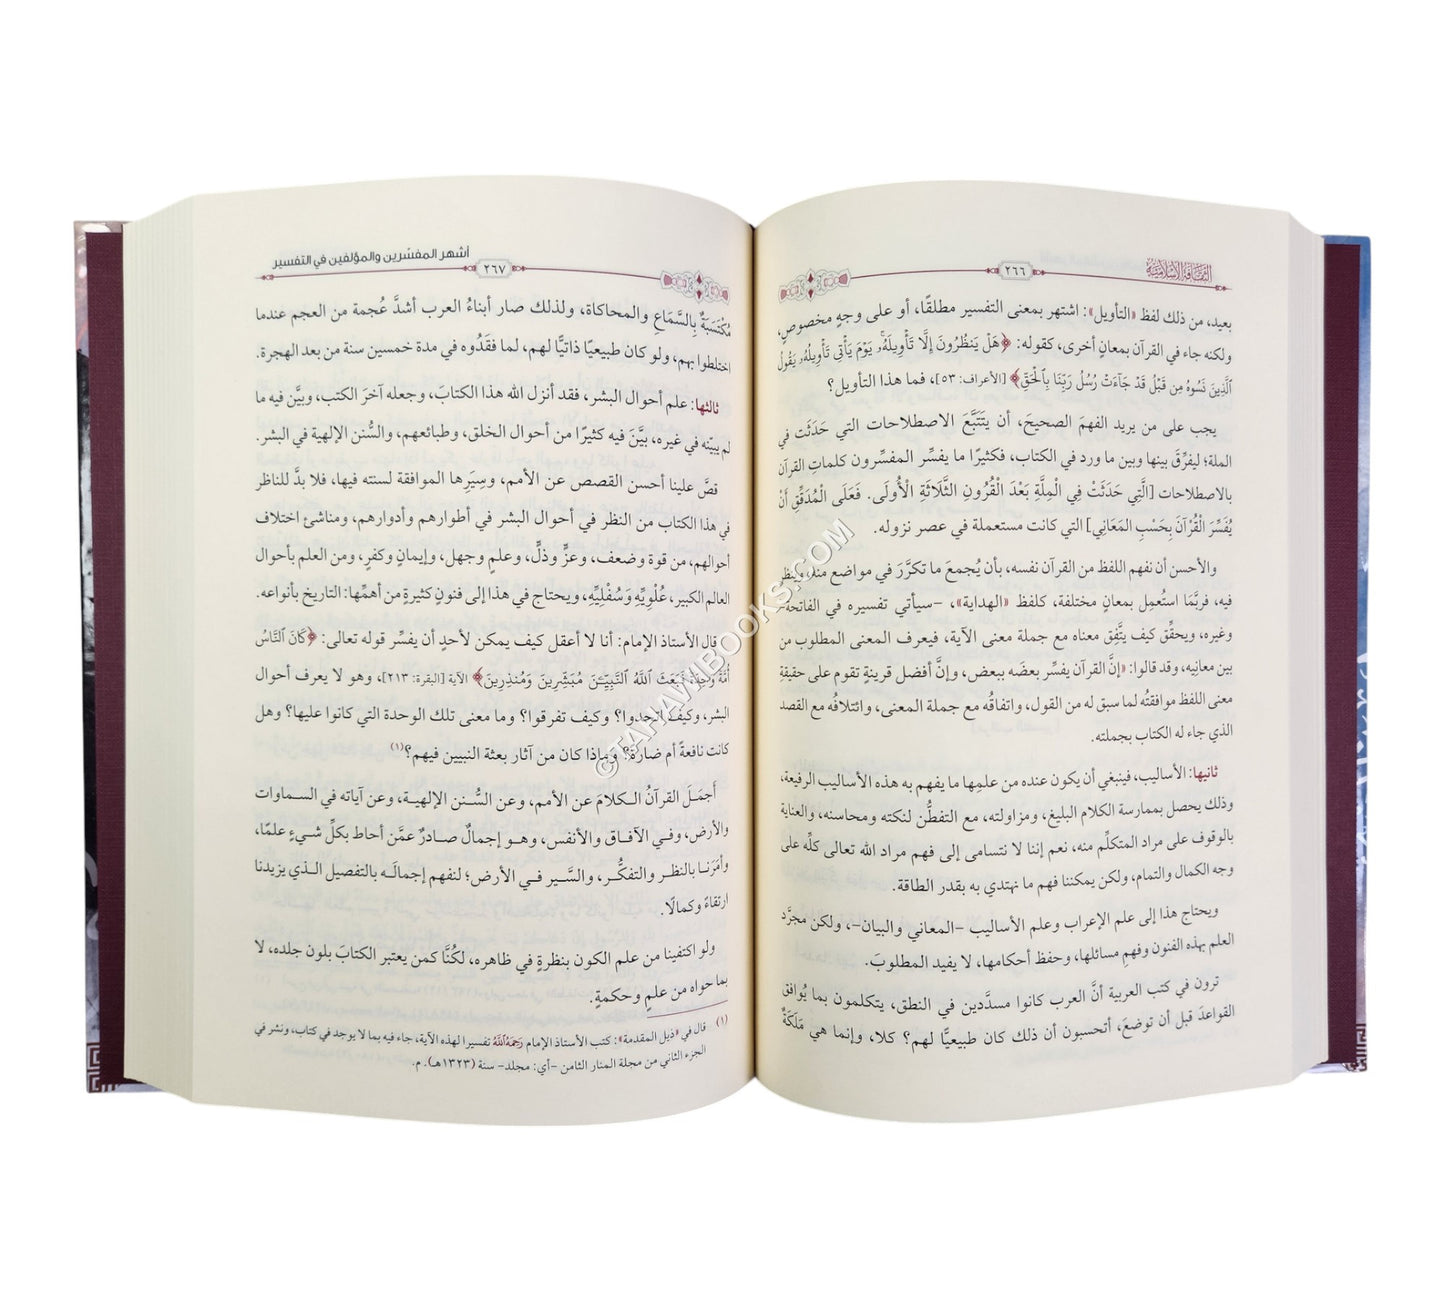 الثقافة الإسلامية
٢٦٦
بعيد، من ذلك لفظ «التأويل»: اشتهر بمعنى التفسير مطلقًا، أو على وجهٍ مخصوصٍ،
ولكنه جاء في القرآن بمعانٍ أخرى، كقوله: ﴿هَلْ يَنظُرُونَ إِلَّا تَأْوِيلَهُۥ يَوْمَ يَأْتِى تَأْوِيلُهُۥ يَقُولُ
ٱلَّذِينَ نَسُوهُ مِن قَبْلُ قَدْ جَآءَتْ رُسُلُ رَبِّنَا بِٱلْحَقِّ﴾ [الأعراف: ٥٣]، فما هذا التأويل؟
يجب على من يريد الفهمَ الصحيحَ، أن يَتَتَبَّعَ الاصطلاحات التي حَدَثَت في
الملة؛ ليفرِّقَ بينها وبين ما ورد في الكتاب، فكثيرًا ما يفسِّر المفسِّرون كلماتِ القرآن
بالاصطلاحات [الَّتِي حَدَثَتْ فِي الْمِلَّةِ بَعْدَ الْقُرُونِ الثَّلَاثَةِ الْأُولَى. فَعَلَى الْمُدَقِّقِ أَنْ
يُفَسِّرَ الْقُرْآنَ بِحَسْبِ المَعَانِي] التي كانت مستعملة في عصر نزوله.
والأحسن أن نفهم اللفظ من القرآن نفسه، بأن يُجمعَ ما تكرَّرَ في مواضع منه، وينظر
فيه، فربَّما استُعمِل بمعانٍ مختلفة، كلفظ «الهداية»، -سيأتي تفسيره في الفاتحة-
وغيره، ويحقِّق كيف يتَّفِق معناه مع جملة معنى الآية، فيعرف المعنى المطلوب من
بين معانِيه، وقد قالوا: «إنَّ القرآن يفسِّر بعضَه ببعض، وإنَّ أفضل قرينةٍ تقوم على حقيقةِ
معنى اللفظ موافقتُه لما سبق له من القول، واتفاقُه مع جملة المعنى، وائتلافُه مع القصد
الذي جاء له الكتاب بجملته.
ثانيها: الأساليب، فينبغي أن يكون عنده من علمِها ما يفهم به هذه الأساليب الرفيعة،
وذلك يحصل بممارسة الكلام البليغ، ومزاولته، مع التفطُّن لنكته ومحاسنه، والعناية
بالوقوف على مراد المتكلِّم منه، نعم إننا لا نتسامى إلى فهم مراد الله تعالى كلِّه على
وجه الكمال والتمام، ولكن يمكننا فهم ما نهتدي به بقدر الطاقة.
ويحتاج هذا إلى علم الإعراب وعلم الأساليب -المعاني والبيان-، ولكن مجرَّد
العلم بهذه الفنون وفهمِ مسائلها، وحفظ أحكامها، لا يفيد المطلوبَ.
ترون في كتب العربية أنَّ العرب كانوا مسدَّدين في النطق، يتكلمون بما يُوافق
القواعدَ قبل أن توضعَ، أتحسبون أن ذلك كان طبيعيًّا لهم؟ كلا، وإنما هي مَلَكَةٌ
أشهر المفسّرين والمؤلفين في التفسير
٢٦٧
مُكْتَسَبَةٌ بِالسَّمَاعِ والمحاكاة، ولذلك صار أبناءُ العرب أشدَّ عُجمة من العجم عندما
اختلطوا بهم، ولو كان طبيعيًا ذاتيًّا لهم، لما فقَدُوه في مدة خمسين سنة من بعد الهجرة.
ثالثها: علم أحوال البشر، فقد أنزل الله هذا الكتابَ، وجعله آخرَ الكتب، وبيَّن فيه ما
لم يبيّنه في غيره، بيَّنَ فيه كثيرًا من أحوال الخلق، وطبائعهم، والسُّنن الإلهية في البشر.
قصَّ علينا أحسن القصص عن الأمم، وسِيَرِها الموافقة لسنته فيها، فلا بدَّ للناظر
في هذا الكتاب من النظر في أحوال البشر في أطوارهم وأدوارهم، ومناشئ اختلاف
أحوالهم، من قوة وضعف، وعزٍّ وذلٍّ، وعلمٍ وجهل، وإيمانٍ وكفرٍ، ومن العلم بأحوال
العالم الكبير، عُلْوِيِّهِ وَسُفْلِيِّهِ، ويحتاج في هذا إلى فنونٍ كثيرةٍ من أهمِّها: التاريخ بأنواعه.
قال الأستاذ الإمام: أنا لا أعقل كيف يمكن لأحدٍ أن يفسِّر قوله تعالى: ﴿كَانَ ٱلنَّاسُ
أُمَّةً وَٰحِدَةً فَبَعَثَ ٱللَّهُ ٱلنَّبِيِّـۧنَ مُبَشِّرِينَ وَمُنذِرِينَ﴾ الآية [البقرة: ٢١٣]، وهو لا يعرف أحوال
البشر، وكيف اتحدوا؟ وكيف تفرقوا؟ وما معنى تلك الوحدة التي كانوا عليها؟ وهل
كانت نافعةً أم ضارةً؟ وماذا كان من آثار بعثة النبيين فيهم؟(١)
أَجمَلَ القرآنُ الكلامَ عن الأمم، وعن السُّنن الإلهية، وعن آياته في السماوات
والأرض، وفي الآفاق والأنفس، وهو إجمالٌ صادرٌ عمَّن أحاط بكلِّ شيءٍ علمًا،
وأمَرَنا بالنظر والتفكُّر، والسَّير في الأرض؛ لنفهم إجمالَه بالتفصيل الذي يزيدنا
ارتقاءً وكمالًا.
ولو اكتفينا من علم الكون بنظرةٍ في ظاهره، لكُنَّا كمن يعتبر الكتابَ بلون جلده، لا
بما حواه من علمٍ وحكمةٍ.
(١) قال في «ذيل المقدمة»: كتب الأستاذ الإمام رَحِمَهُ اللَّهُ تفسيرا لهذه الآية، جاء فيه بما لا يوجد في كتاب، ونشر في
الجزء الثاني من مجلة المنار الثامن -أي: مجلد- سنة (١٣٢٣هـ). م.
©TAHAWIBOOKS.COM